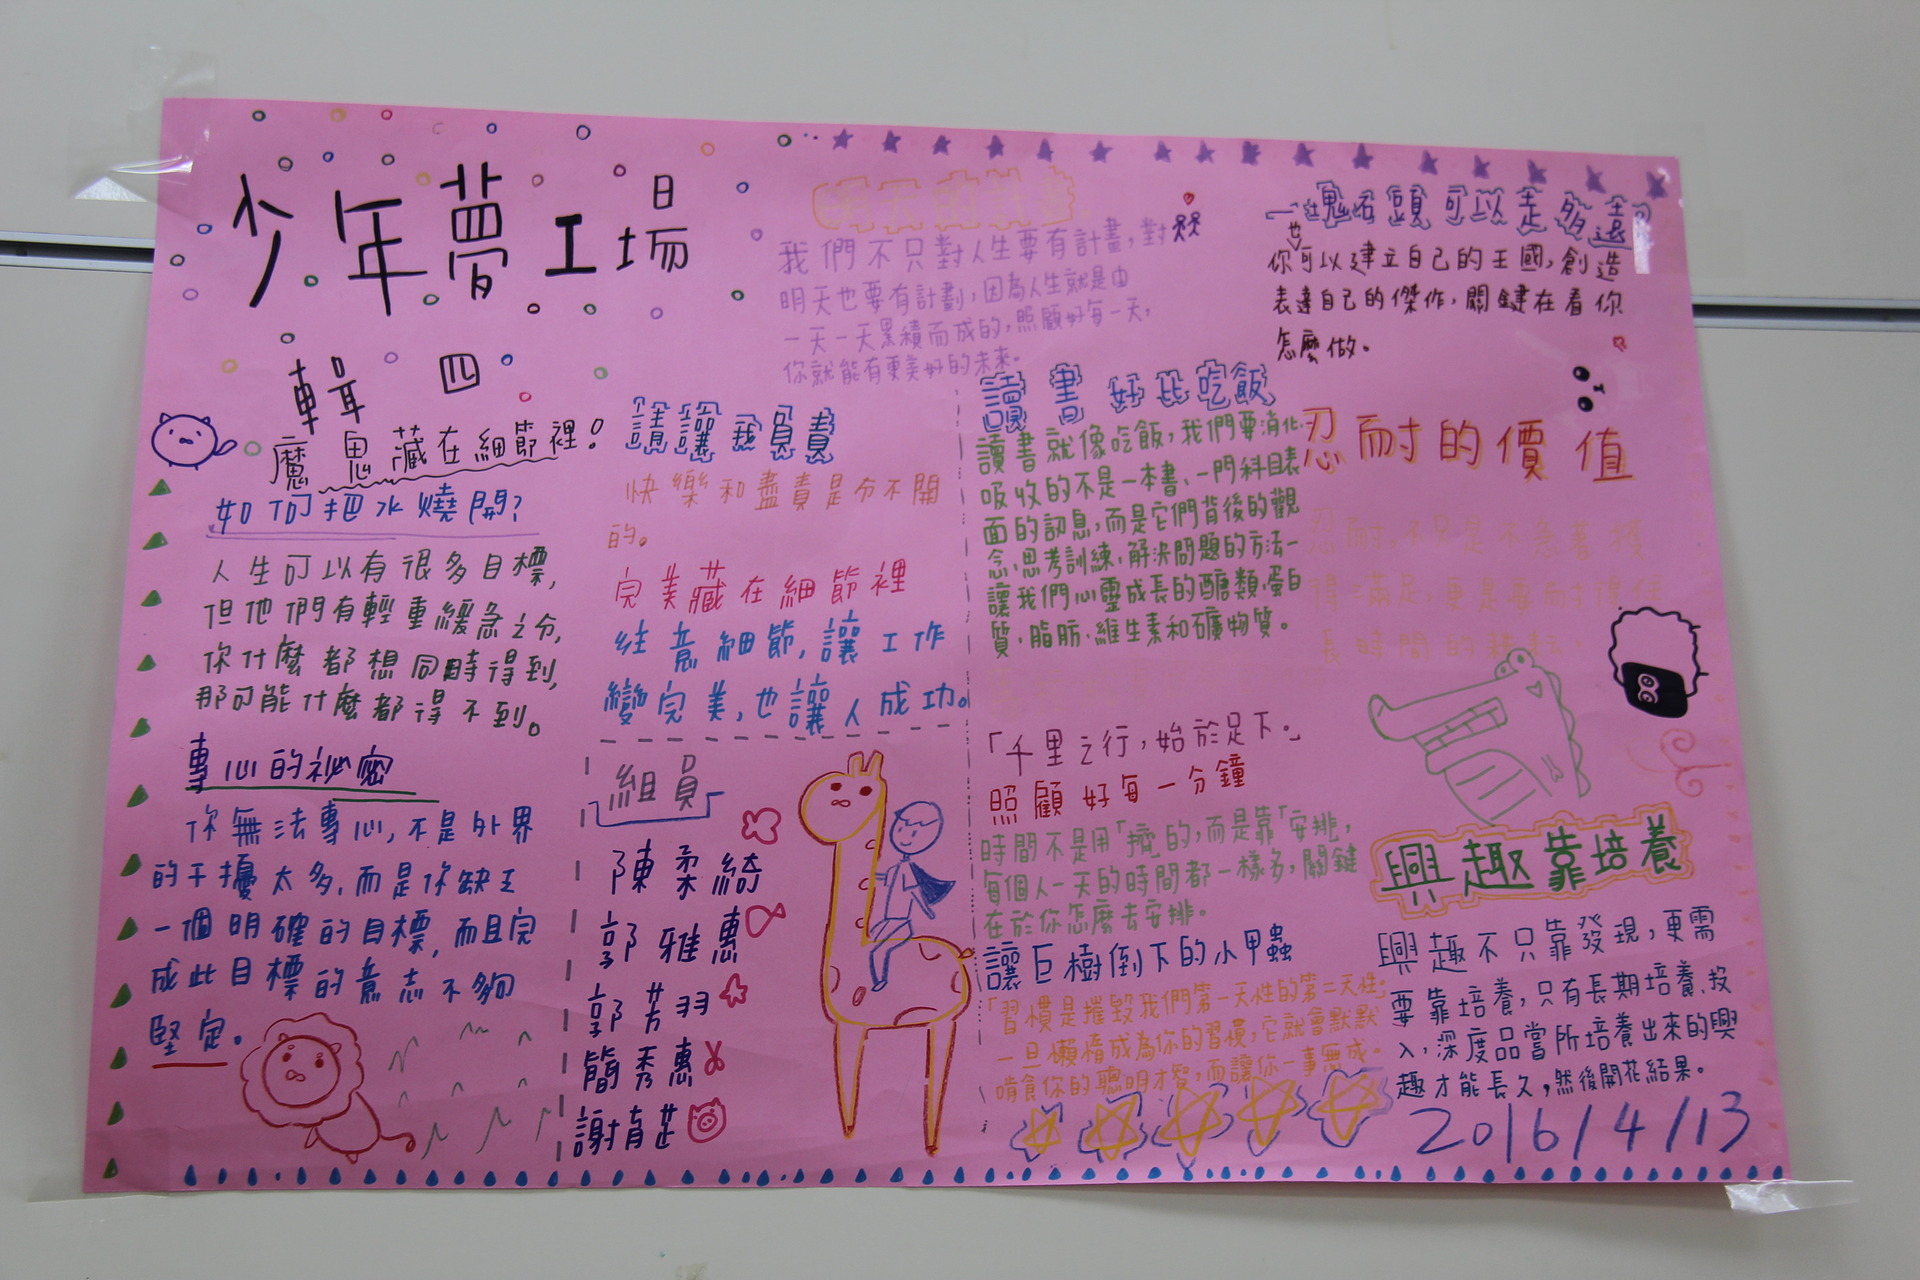 少年夢工場
輯四
魔鬼藏在細節裡!
如何把水燒開?
人生可以有很多目標,
但他們有輕重緩急之分,
你什麼都想同時得到,
那可能什麼都得不到。
專心的祕密
你無法專心,不是外界
的干擾太多,而是你缺乏
一個明確的目標,而且完
成此目標的意志不夠
堅定。
請讓我負責
快樂和盡責是分不開
的。
完美藏在細節裡
注意細節,讓工作
變完美,也讓人成功。
組員
陳柔綺
郭雅惠
郭芳羽
簡秀惠
謝育芷
明天的計畫
我們不只對人生要有計畫,對
明天也要有計劃,因為人生就是由
一天一天累積而成的,照顧好每一天,
你就能有更美好的未來。
讀書好比吃飯
讀書就像吃飯,我們要消化
吸收的不是一本書、一門科目表
面的訊息,而是它們背後的觀
念、思考訓練、解決問題的方法一
讓我們心靈成長的醣類、蛋白
質、脂肪、維生素和礦物質。
「千里之行,始於足下。」
照顧好每一分鐘
時間不是用「擠」的,而是靠「安排」,
每個人一天的時間都一樣多,關鍵
在於你怎麼去安排。
讓巨樹倒下的小甲蟲
「習慣是摧毀我們第一天性的第二天性」
一旦懶惰成為你的習慣,它就會默默
啃食你的聰明才智,而讓你一事無成。
一塊石頭可以走多遠
你也可以建立自己的王國,創造
表達自己的傑作,關鍵在看你
怎麼做。
忍耐的價值
忍耐,不只是不急著獲
得滿足,更是要耐得住
長時間的
興趣靠培養
興趣不只靠發現,更需
要靠培養,只有長期培養、投
入,深度品嘗所培養出來的興
趣才能長久,然後開花結果。
2016/4/13